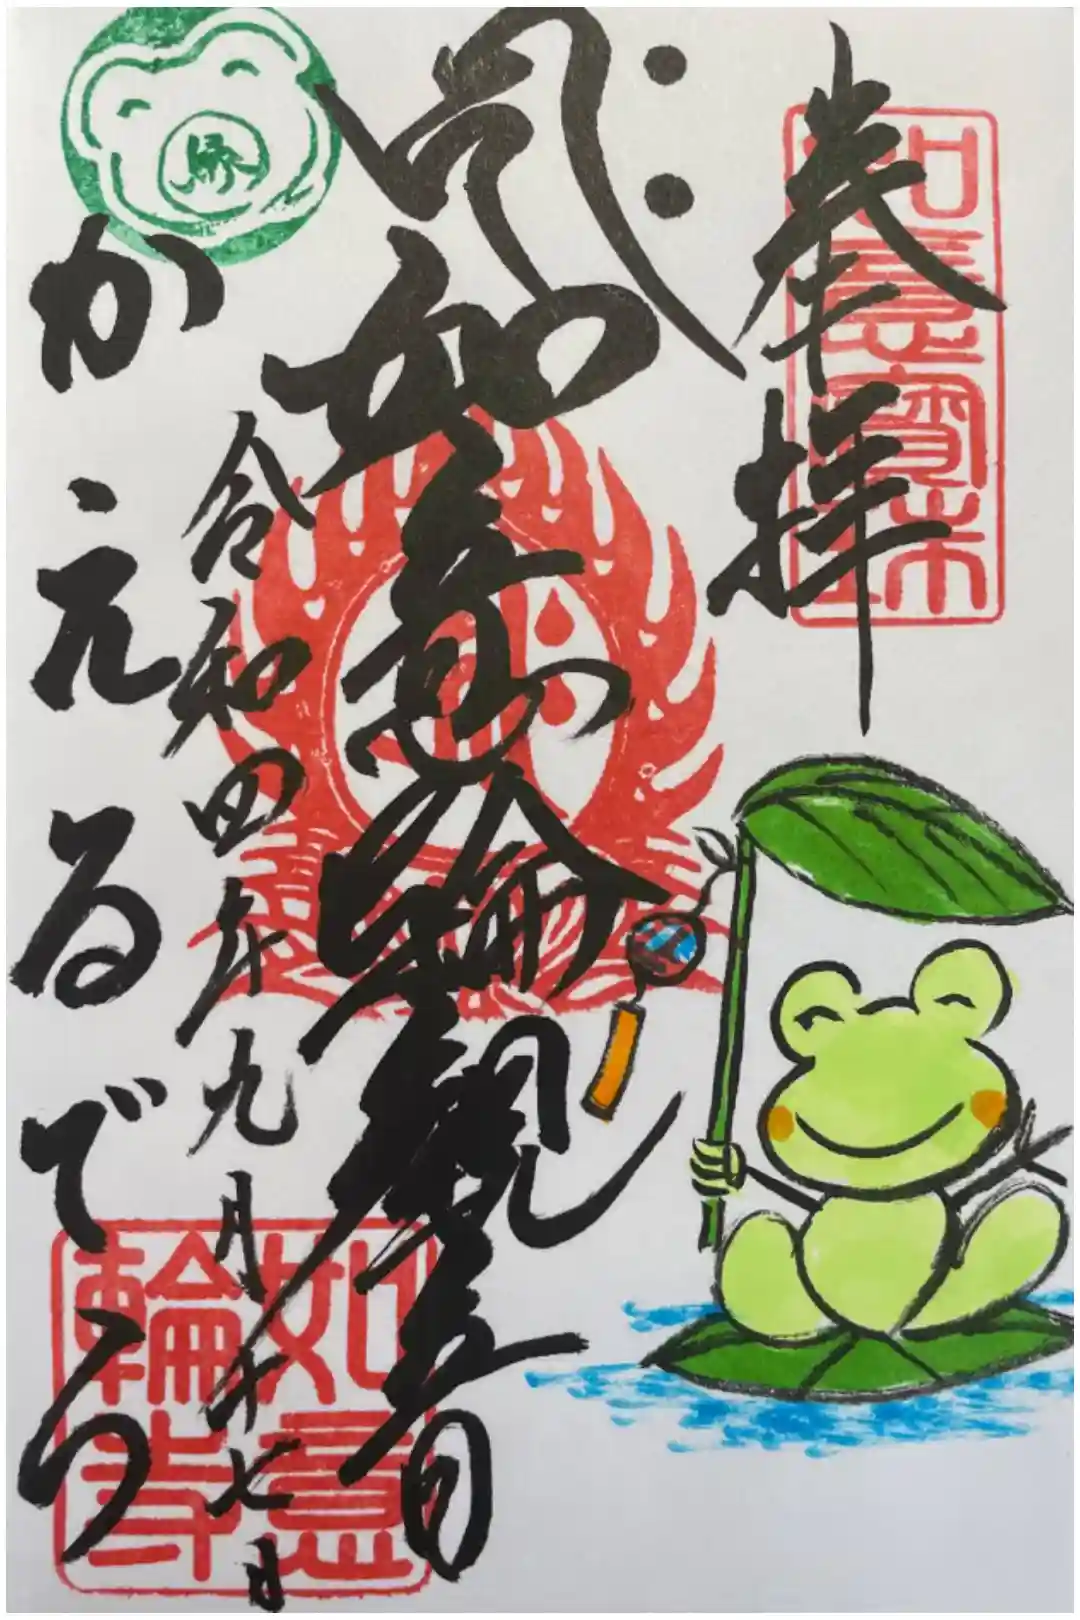 奉拝
如意寳珠
如意輪観音
令和四年九月十七日
かえるでら
縁
如意輪寺